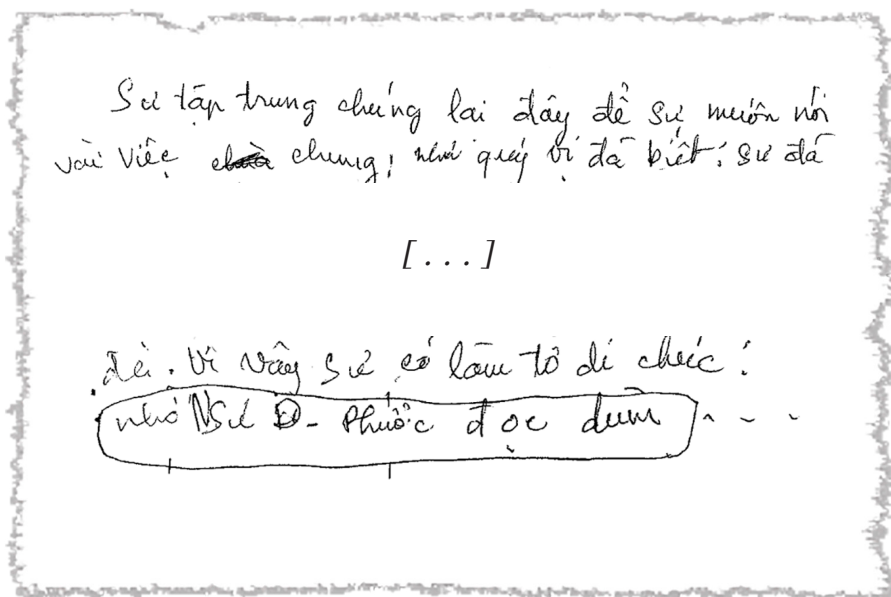 Sư tập trung chúng lại đây để sư muốn nói
vài việc chung; như quý vị đã biết: sư đã
[...]
. Vì vậy sư có làm tờ di chúc:
nhờ NSư Đ- Phước đọc dùm - - -